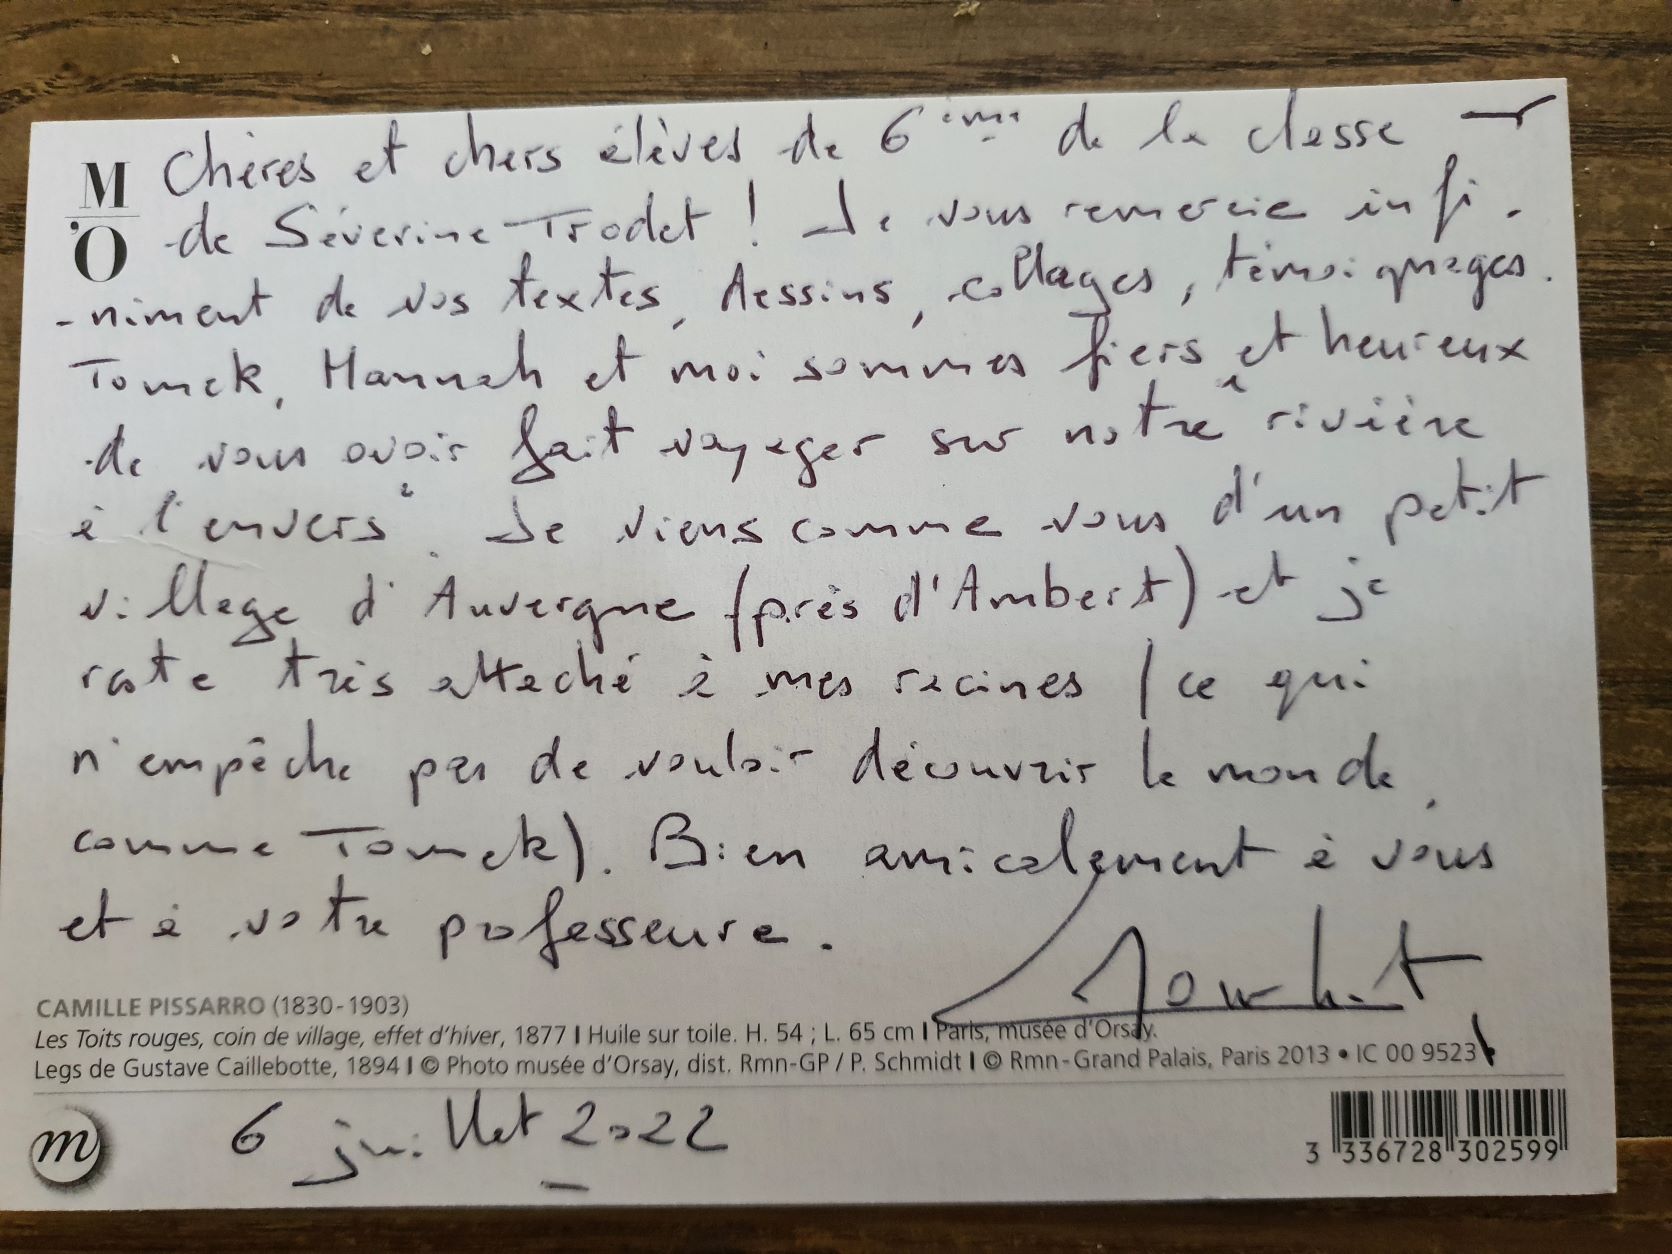 M
'O
Chères et chers élèves de 6ème de la classe
de Séverine Trodet ! Je vous remercie infi-
-niment de vos textes, dessins, collages, témoignages.
Tomek, Hannah et moi sommes fiers et heureux
de vous avoir fait voyager sur notre "rivière
à l'envers". Je viens comme vous d'un petit
village d'Auvergne (près d'Ambert) et je
reste très attaché à mes racines (ce qui
n'empêche pas de vouloir découvrir le monde,
comme Tomek). Bien amicalement à vous
et à votre professeure.
CAMILLE PISSARRO (1830-1903)
Les Toits rouges, coin de village, effet d'hiver, 1877 I Huile sur toile. H. 54 ; L. 65 cm I Paris, musée d'Orsay.
Legs de Gustave Caillebotte, 1894 I © Photo musée d'Orsay, dist. Rmn-GP / P. Schmidt I © Rmn-Grand Palais, Paris 2013 • IC 00 9523
m
6 juillet 2022
3 336728 302599